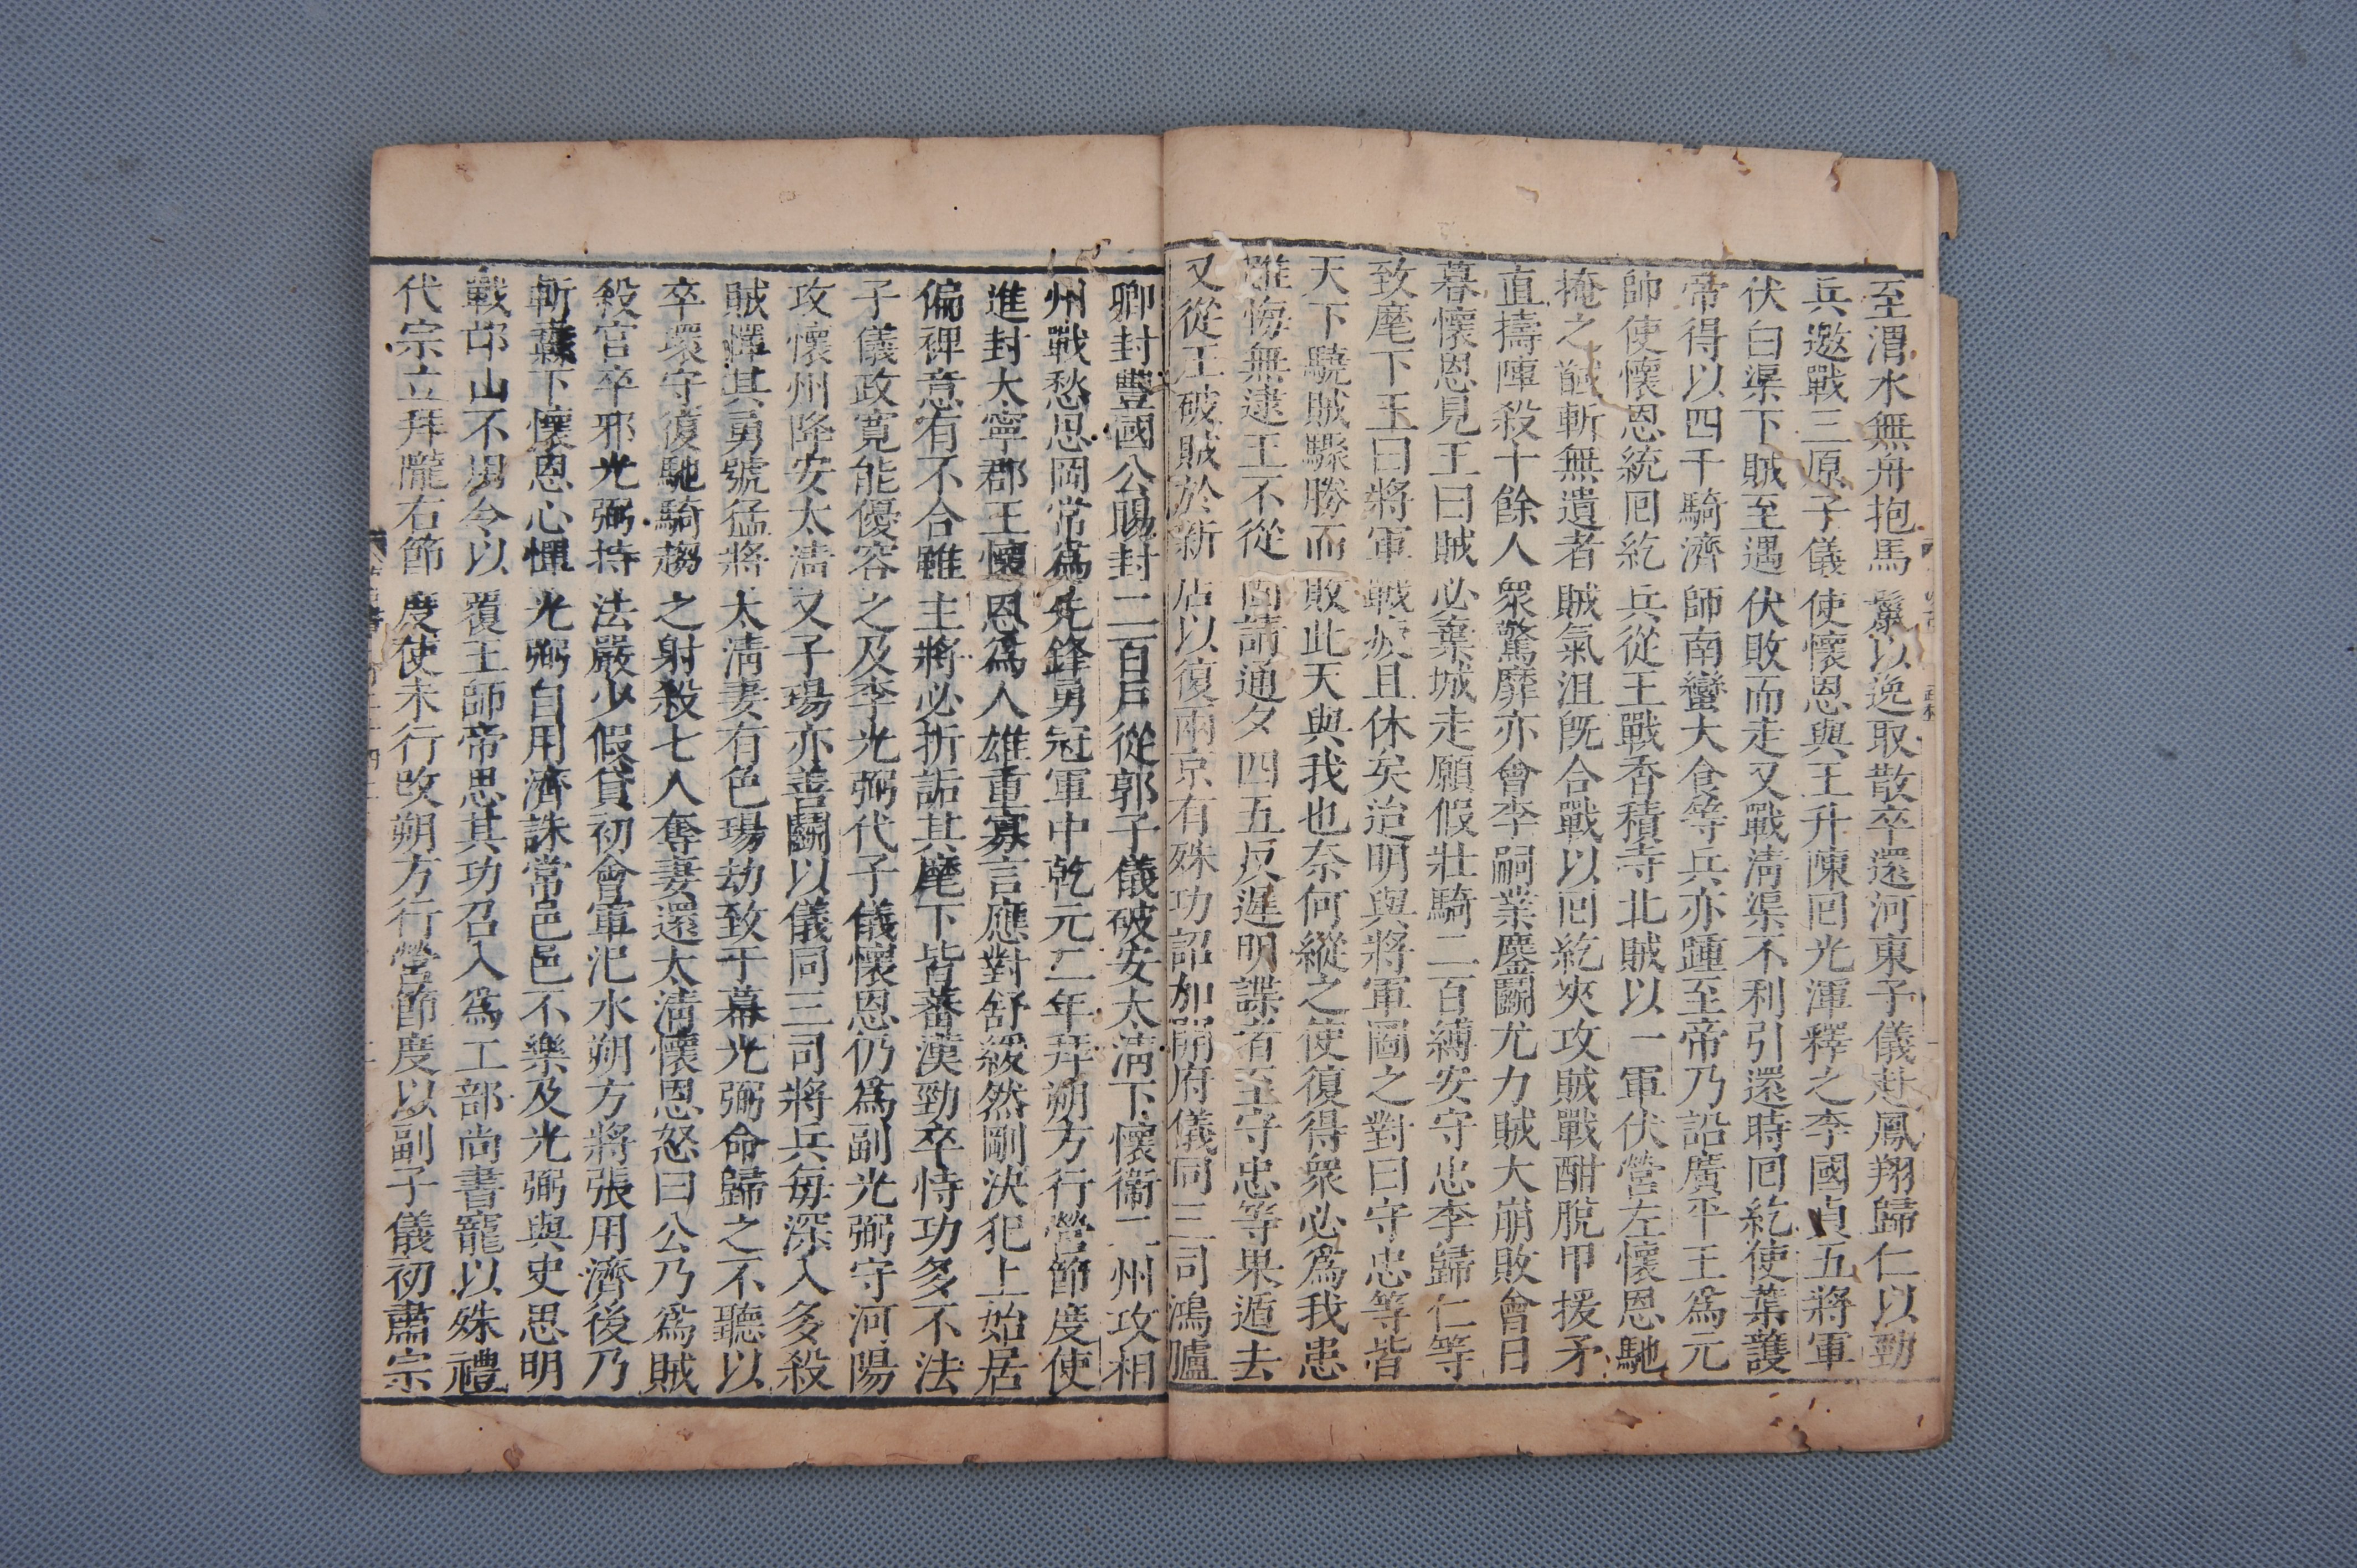 至渭水無舟抱馬鬣以逸取散卒還河東子儀赴鳳翔歸仁以勁
兵邀戰三原子儀使懷恩與王升陳回光渾釋之李國貞五將軍
伏白渠下賊至遇伏敗而走又戰淸渠不利引還時回紇使葉護
帝得以四千騎濟師南蠻大食等兵亦踵至帝乃詔廣平王爲元
帥使懷恩統回紇兵從王戰香積寺北賊以一軍伏營左懷恩馳
掩之馘斬無遺者賊氣沮旣合戰以回紇夾攻賊戰酣脫甲援矛
直擣陣殺十餘人衆驚靡亦會李嗣業鏖鬬尤力賊大崩敗會日
暮懷恩見王曰賊必棄城走願假壯騎二百縛安守忠李歸仁等
致麾下王曰將軍戰疲且休矣迨明與將軍圖之對曰守忠等皆
天下驍賊驟勝而敗此天與我也奈何縱之使復得衆必爲我患
雖悔無逮王不從固請通夕四五反遲明諜者至守忠等果遁去
又從王破賊於新店以復兩京有殊功詔加開府儀同三司鴻臚
卿封豐國公賜封二百戶從郭子儀破安太淸下懷衞二州攻相
州戰愁思岡常爲先鋒勇冠軍中乾元二年拜朔方行營節度使
進封大寧郡王懷恩爲人雄重寡言應對舒緩然剛決犯上始居
偏裨意有不合雖主將必折詬其麾下皆蕃漢勁卒恃功多不法
子儀政寬能優容之及李光弼代子儀懷恩仍爲副光弼守河陽
攻懷州降安太淸又子瑒亦善鬬以儀同三司將兵每深入多殺
賊憚其勇號猛將太淸妻有色瑒劫致于幕光弼命歸之不聽以
卒環守復馳騎趨之射殺七人奪妻還太淸懷恩怒曰公乃爲賊
殺官卒邪光弼持法嚴少假貸初會軍汜水朔方將張用濟後乃
斬纛下懷恩心憚光弼自用濟誅常邑邑不樂及光弼與史思明
戰邙山不用令以覆王師帝思其功召入爲工部尚書寵以殊禮
代宗立拜隴右節度使未行改朔方行營節度以副子儀初肅宗